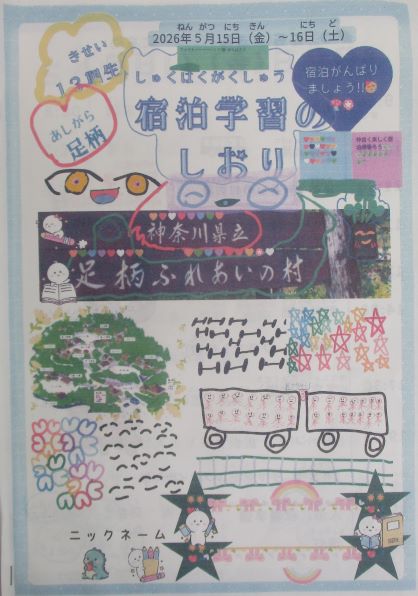 ねん がつ にち きん にち ど
2026年5月15日(金)~16日(土)
きせい
12期生
しゅくはくがくしゅう
宿泊学習の
しおり
宿泊がんばり
ましょう!!
あしがら
足柄
神奈川県立
足柄ふれあいの村
ニックネーム